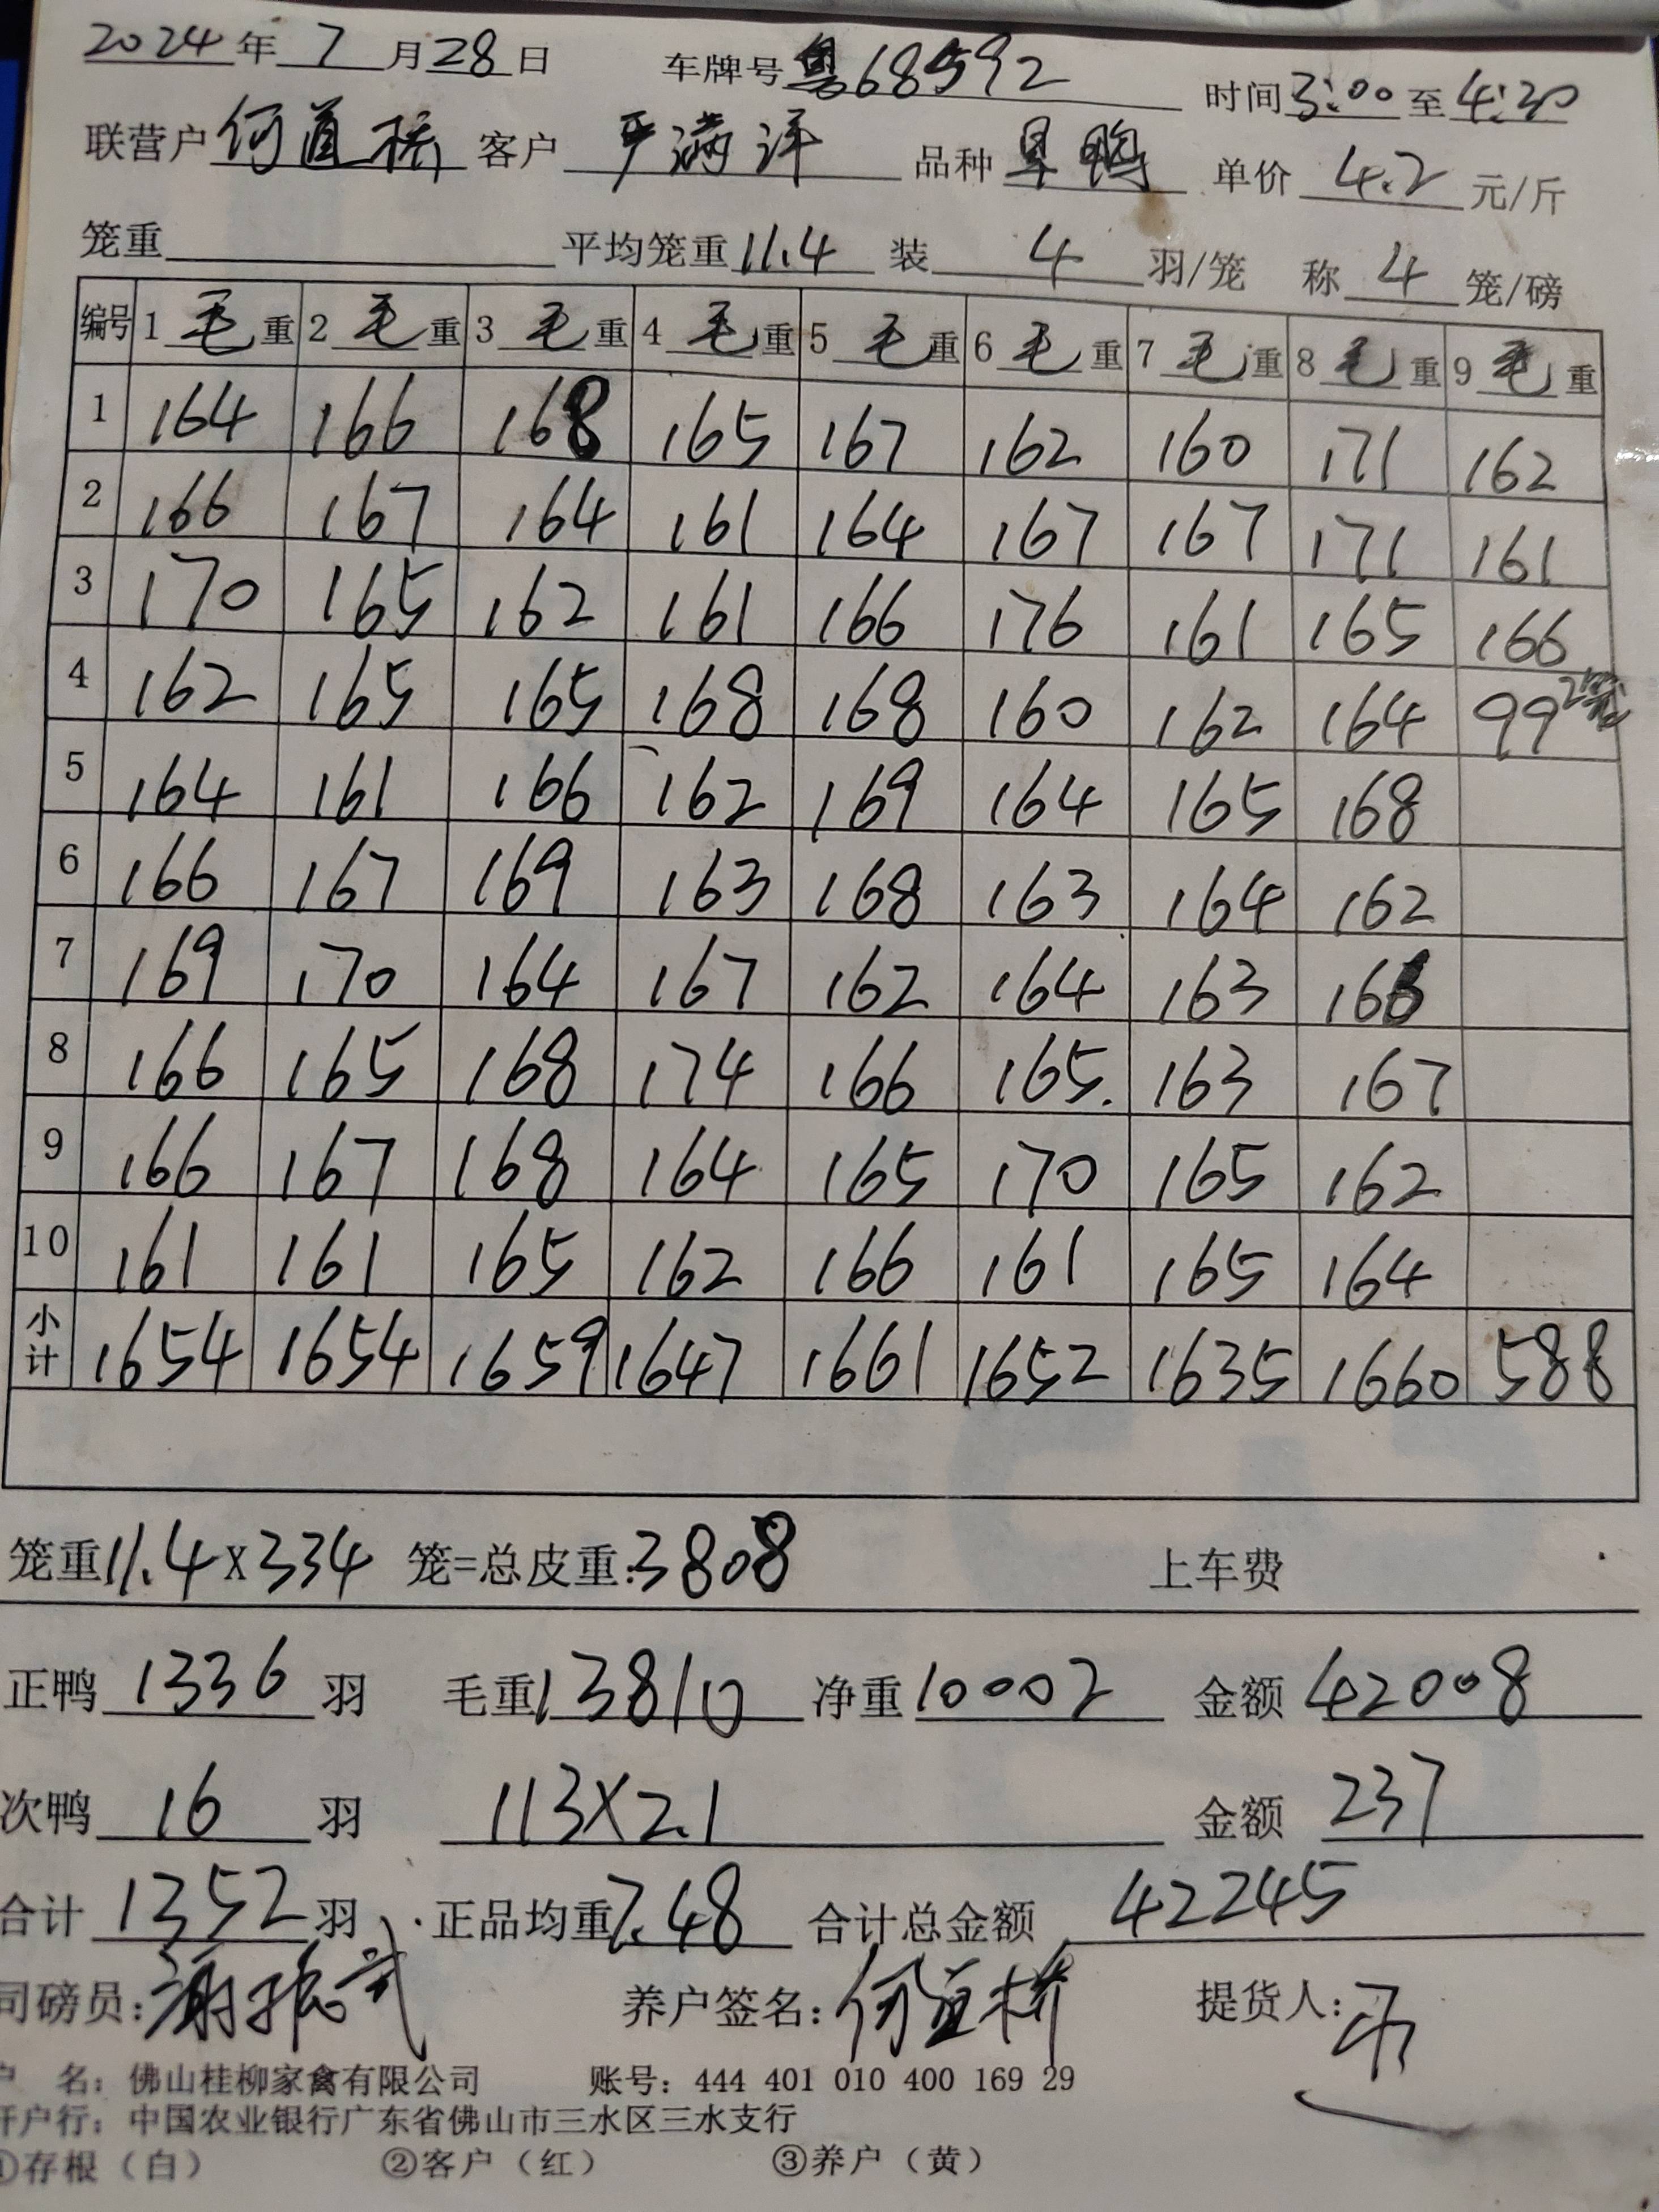 2024年7月28日 车牌号粤68592 时间3:00至4:20
联营户何直桥 客户严满洋 品种旱鸭 单价4.2元/斤
笼重 平均笼重11.4 装4羽/笼 称4笼/磅
编号 1毛重 2毛重 3毛重 4毛重 5毛重 6毛重 7毛重 8毛重 9毛重
1 164 166 168 165 167 162 160 171 162
2 166 167 164 161 164 167 167 171 161
3 170 165 162 161 166 176 161 165 166
4 162 165 165 168 168 160 162 164 99
5 164 161 166 162 169 164 165 168
6 166 167 169 163 168 163 164 162
7 169 170 164 167 162 164 163 166
8 166 165 168 174 166 165. 163 167
9 166 167 168 164 165 170 165 162
10 161 161 165 162 166 161 165 164
小计 1654 1654 1659 1647 1661 1652 1635 1660 588
笼重11.4×334 笼=总皮重:3808 上车费
正鸭1336羽 毛重13810 净重10002 金额42008
次鸭16羽 113×2.1 金额237
合计1352羽 正品均重7.48 合计总金额42245
司磅员: 养户签名:何直桥 提货人:
户 名:佛山桂柳家禽有限公司 账号:444 401 010 400 169 29
开户行:中国农业银行广东省佛山市三水区三水支行
①存根(白) ②客户(红) ③养户(黄)